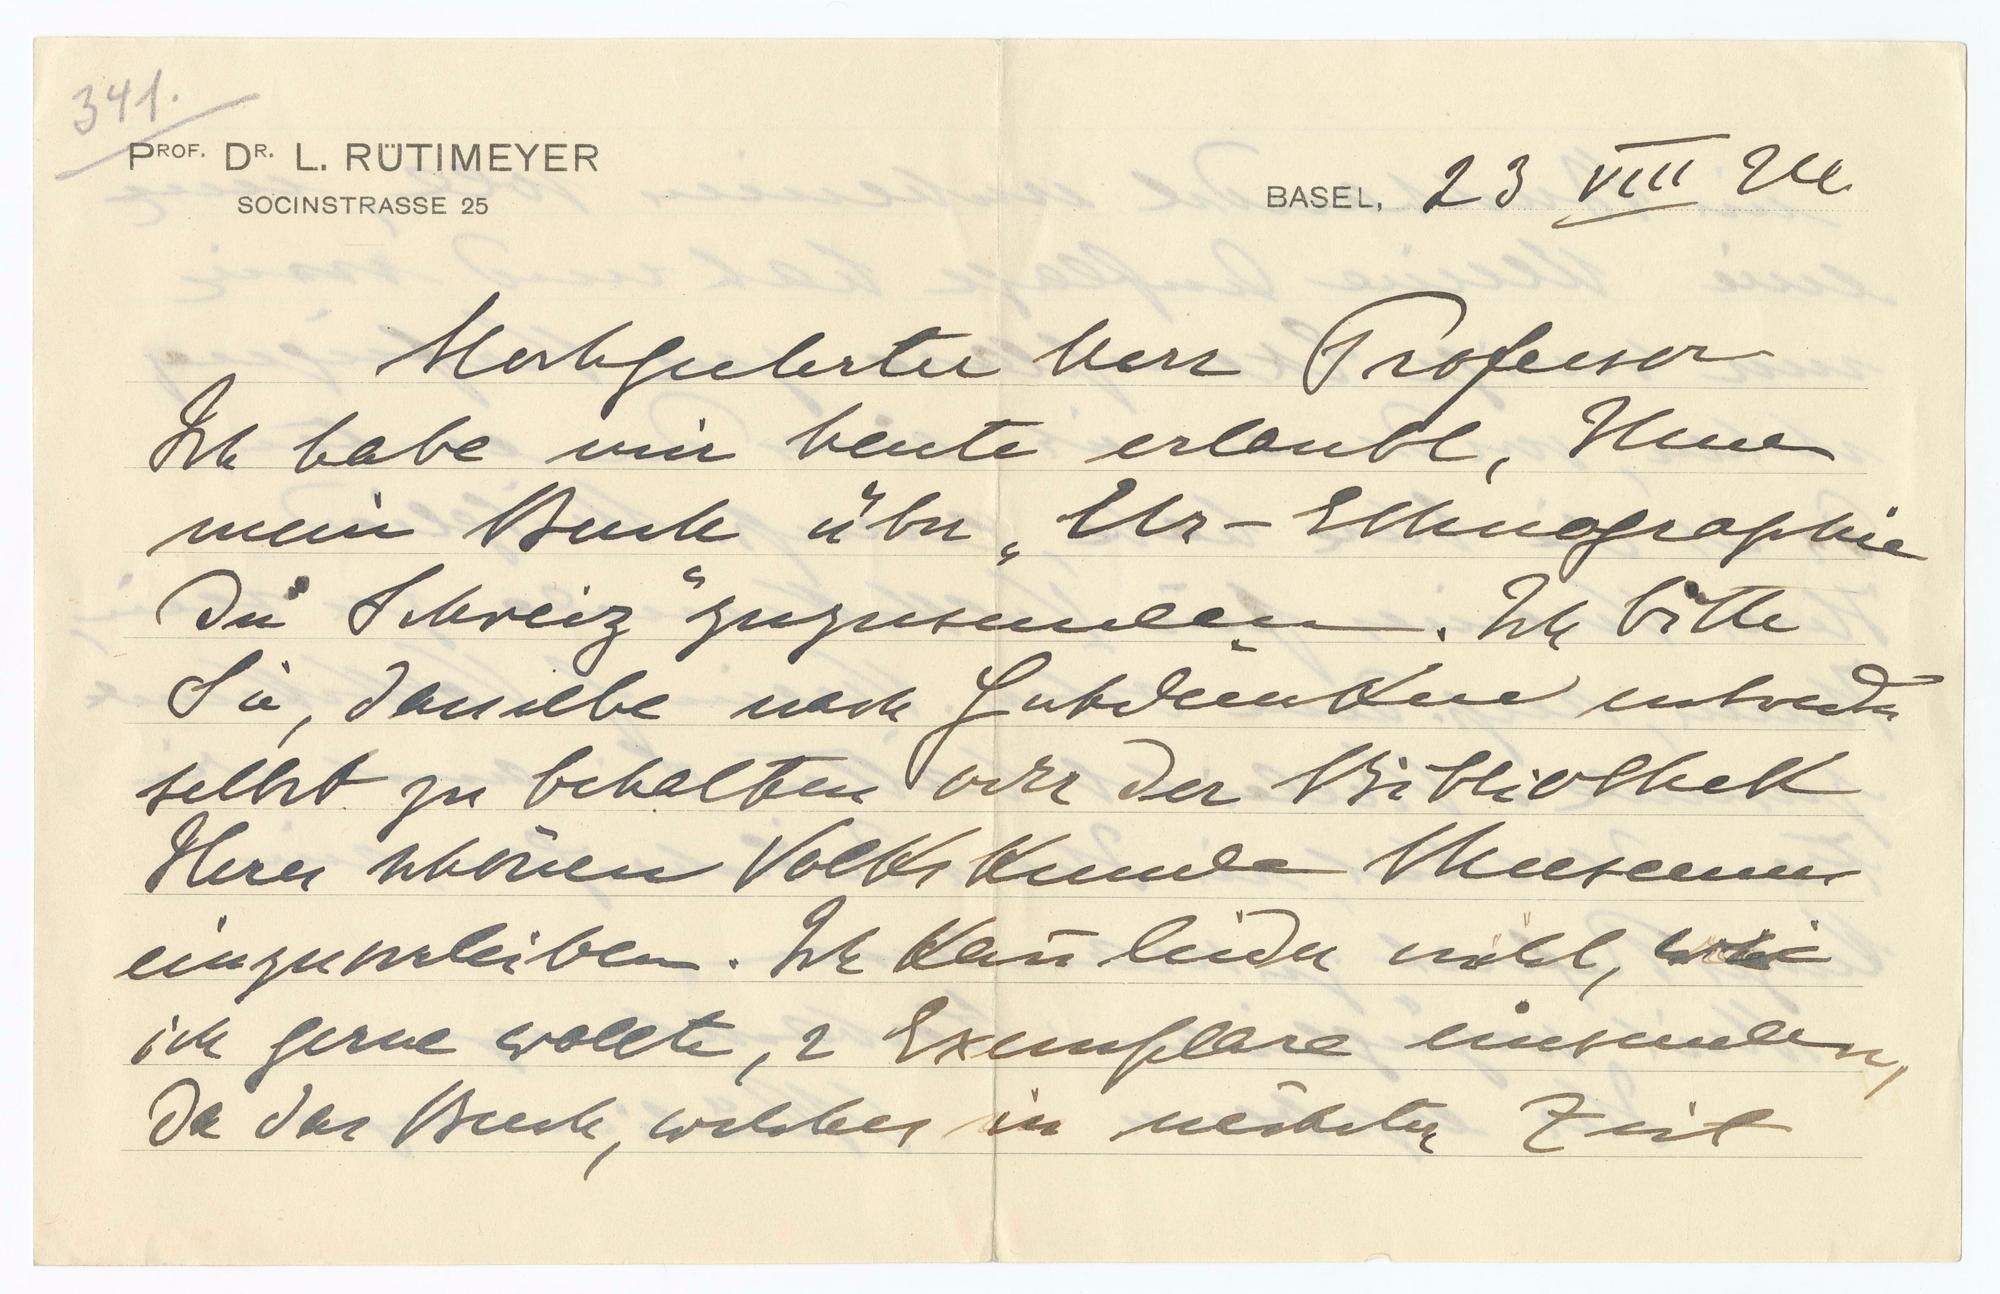 341.
PROF. DR. L. RÜTIMEYER
SOCINSTRASSE 25
BASEL, 23 VIII 24.
Hochgeehrter Herr Professor
Ich habe mir heute erlaubt, Ihnen
mein Buch über „Ur-Ethnographie
der Schweiz" zuzusenden. Ich bitte
Sie, dasselbe nach Gutdünken entweder
selbst zu behalten oder der Bibliothek
Ihres schönen Volkskunde Museums
einzuverleiben. Ich kan̄ leider nicht, wie
ich gerne wollte, 2 Exemplare einsenden,
da das Buch, welches in nächster Zeit